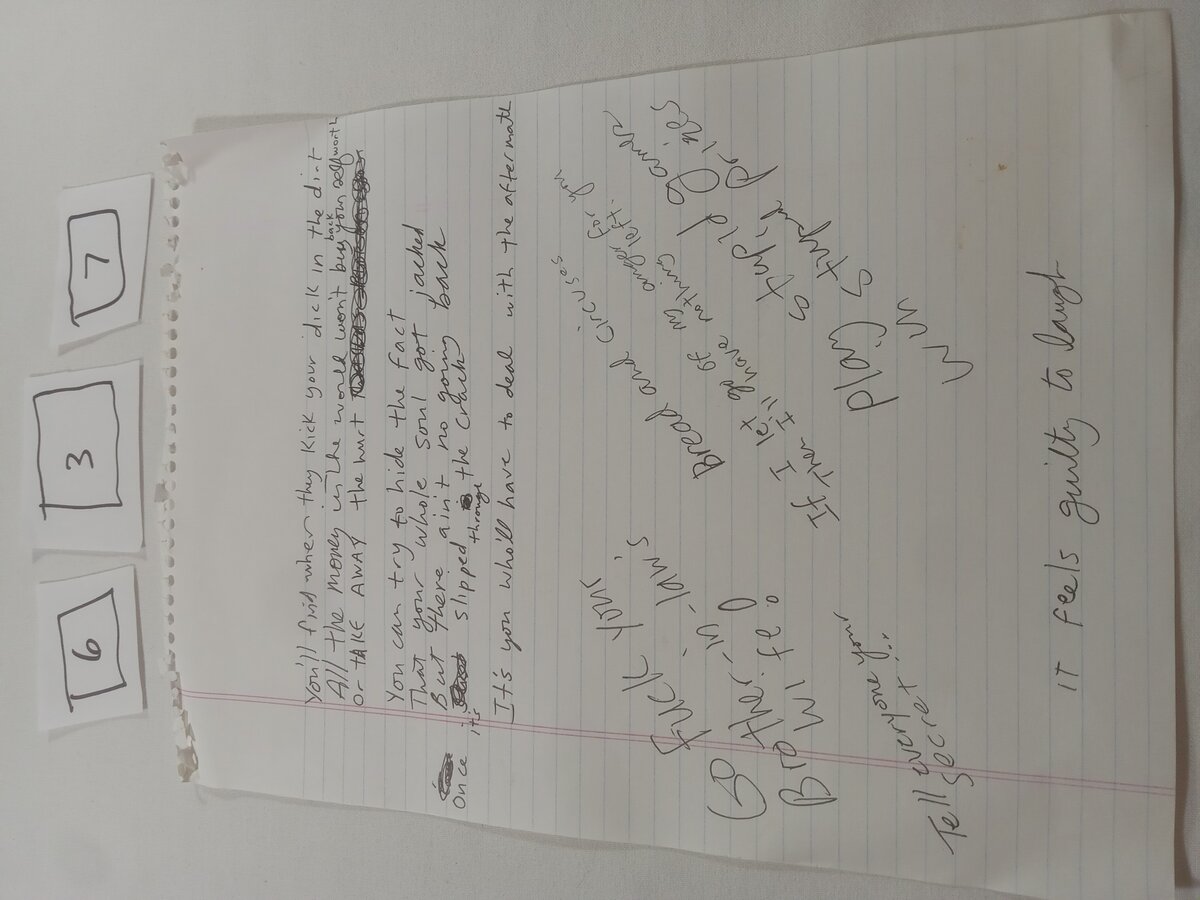 6
3
7
You'll find when they kick your dick in the dirt
All the money in the world won't buy back your self worth
Or TAKE AWAY the hurt
You can try to hide the fact
That your whole soul got jacked
But there ain't no going back
Once it's slipped through the cracks
It's you who'll have to deal with the aftermath
Fuck your
Brother-in-law's
wife!
Tell everyone your
secret...
Bread and circuses
If I let go of my anger for you
then I'll have nothing left.
Play stupid games
Win stupid prizes
IT feels guilty to laugh